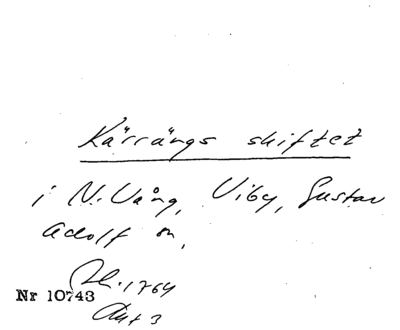 Kärrängs skiftet
i N. Vång, Viby, Gustav
Adolf sn,
1764
Nr 10743
Akt 3